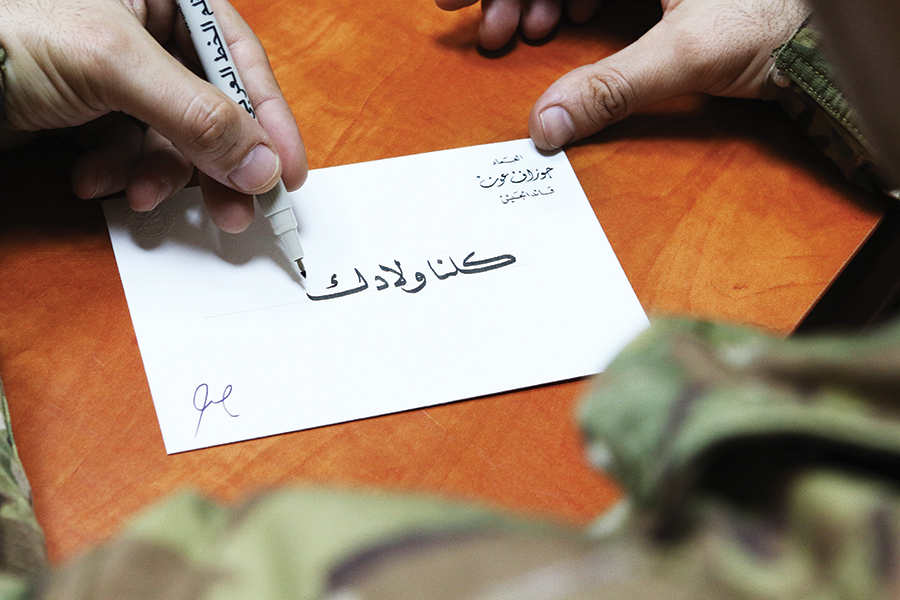 العماد
جوزاف عون
قائد الجيش
كلنا ولادك
قلم الخط العربي